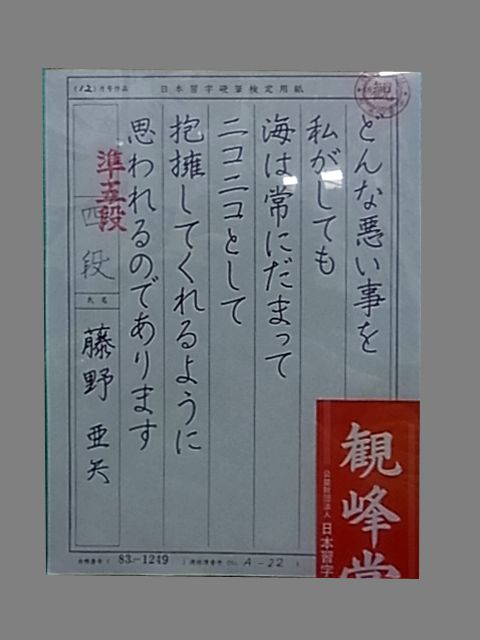 (12)月号作品
日本習字硬筆検定用紙
観
どんな悪い事を
私がしても
海は常にだまって
ニコニコとして
抱擁してくれるように
思われるのであります
準五段
四段
氏名
藤野亜矢
83-1249
A-22
観峰賞
公益財団法人
日本習字